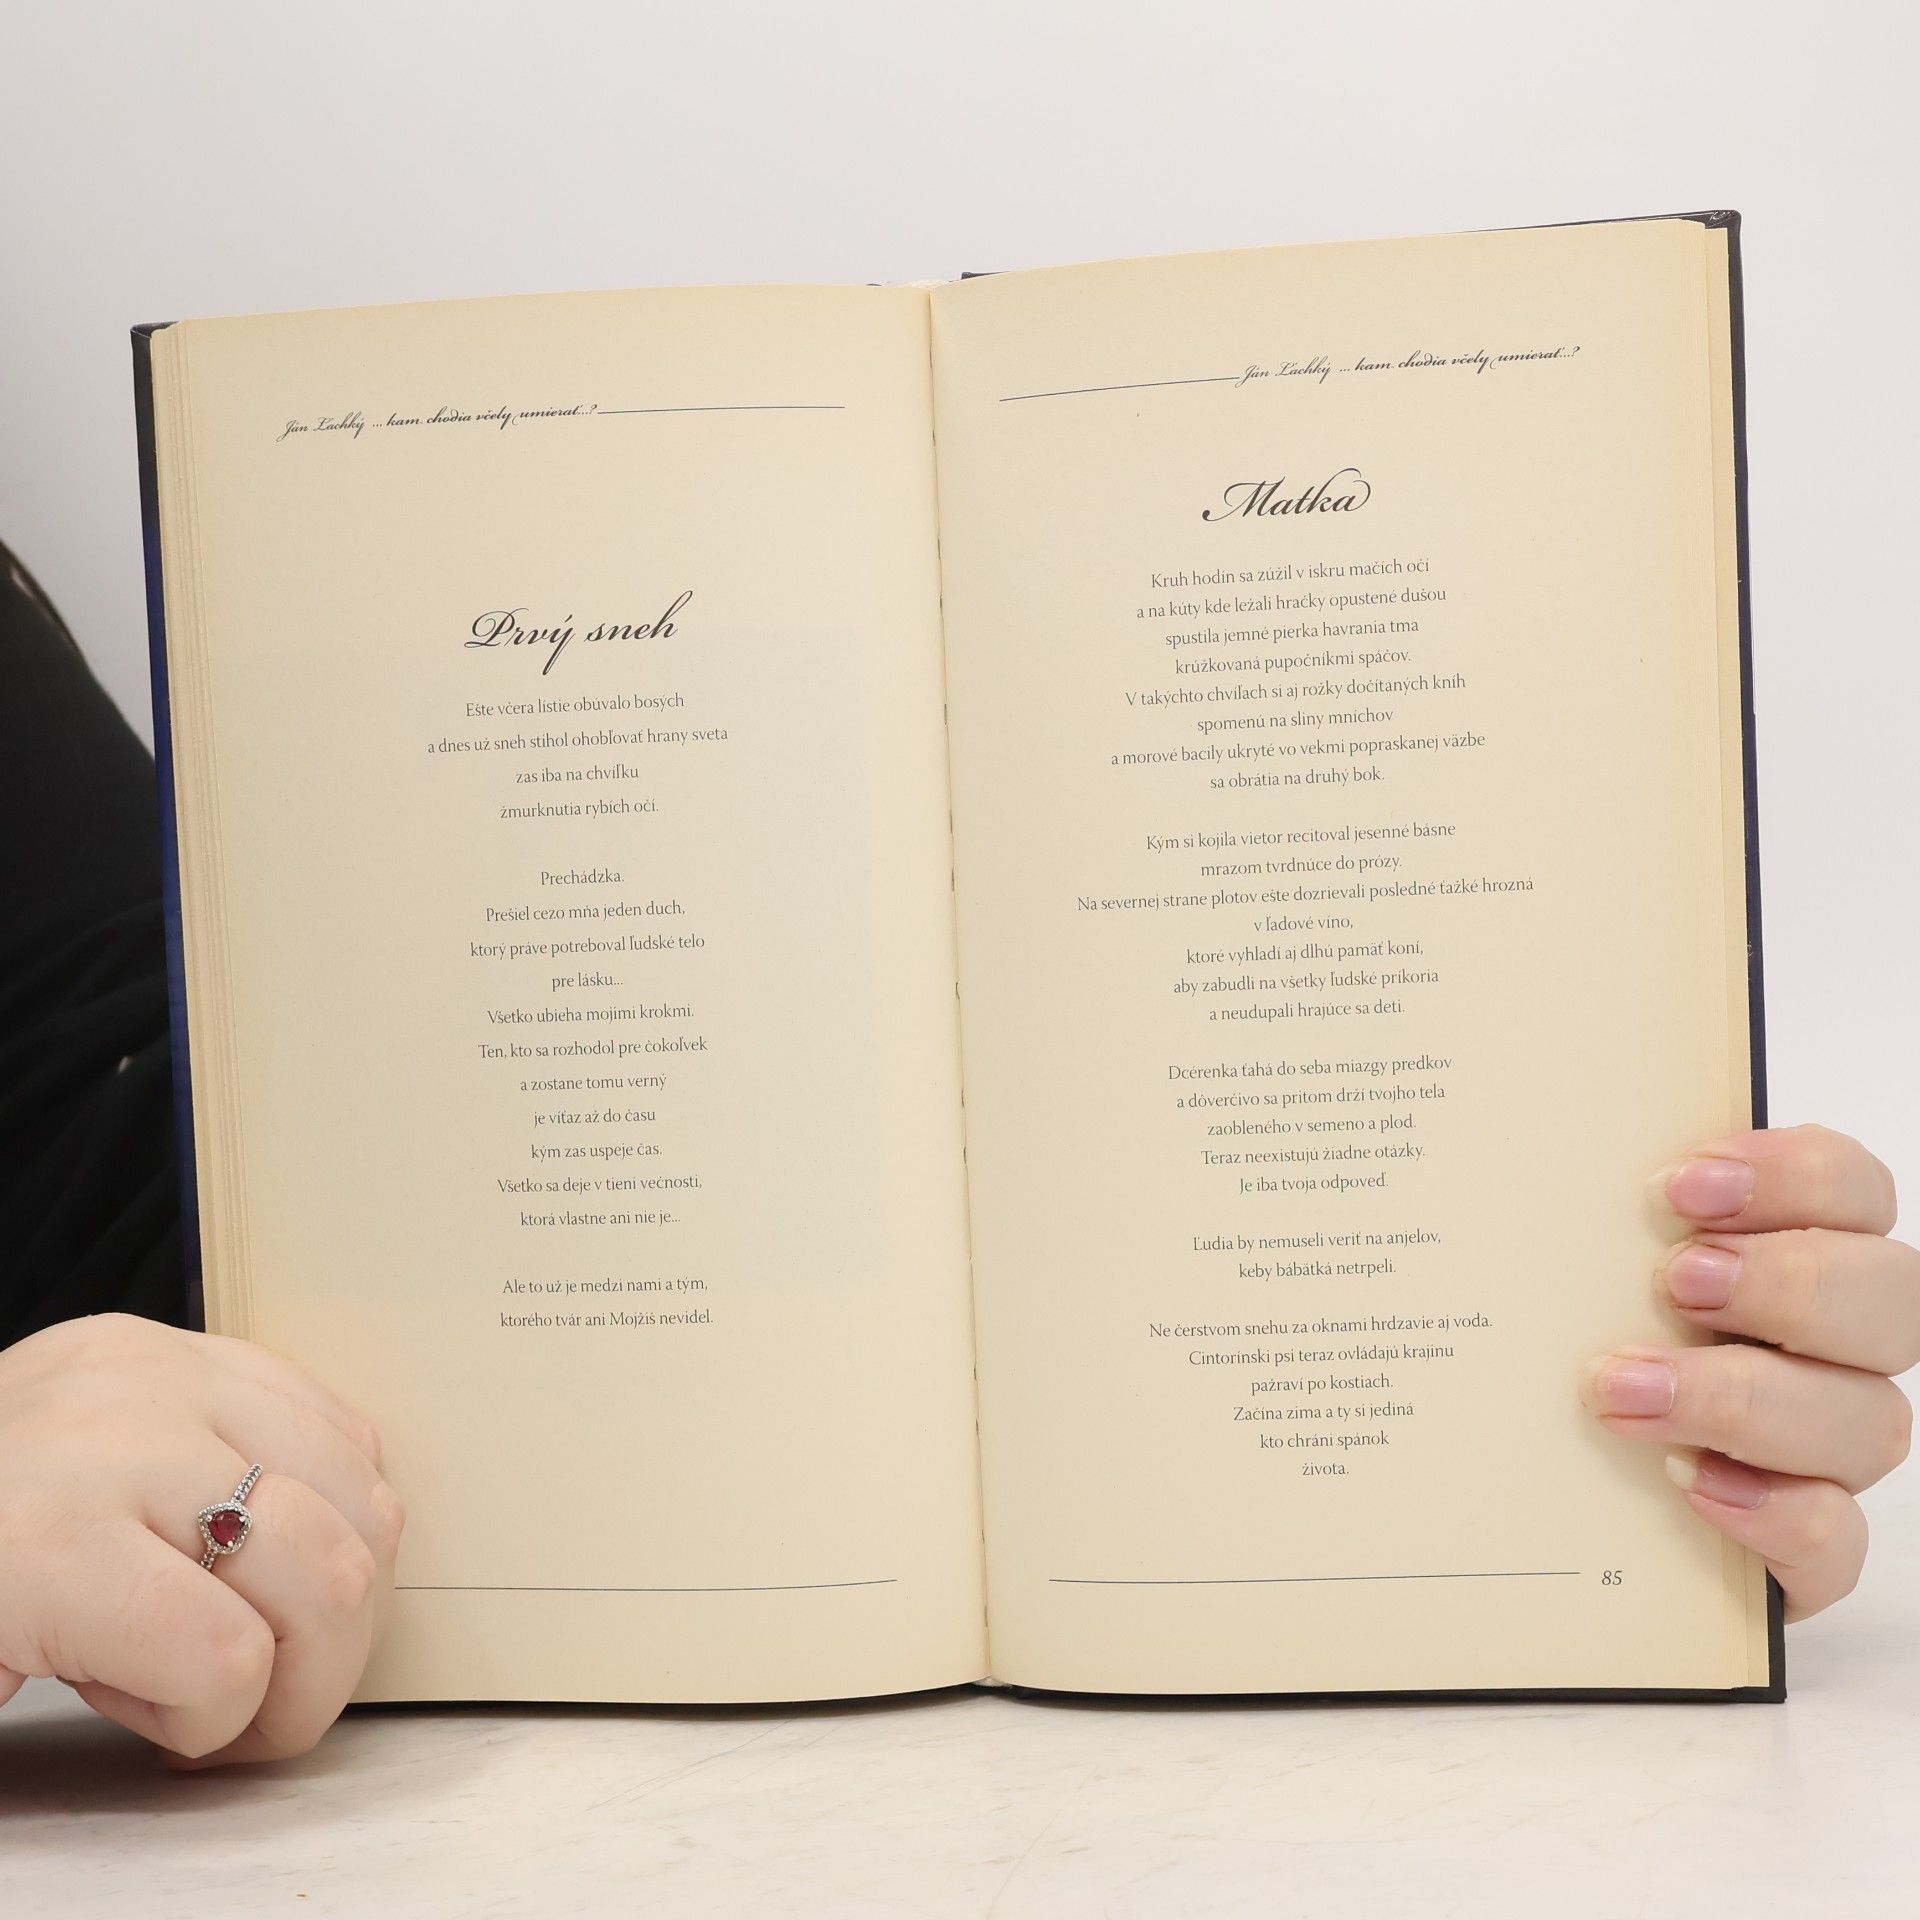 Ján Ľachký ... kam chodia včely umierať...?
Prvý sneh
Ešte včera lístie obúvalo bosých
a dnes už sneh stihol ohobľovať hrany sveta
zas iba na chvíľku
žmurknutia rybích očí.
Prechádzka.
Prešiel cezo mňa jeden duch,
ktorý práve potreboval ľudské telo
pre lásku...
Všetko ubieha mojimi krokmi.
Ten, kto sa rozhodol pre čokoľvek
a zostane tomu verný
je víťaz až do času
kým zas uspeje čas.
Všetko sa deje v tieni večnosti,
ktorá vlastne ani nie je...
Ale to už je medzi nami a tým,
ktorého tvár ani Mojžiš nevidel.
Ján Ľachký ... kam chodia včely umierať...?
Matka
Kruh hodín sa zúžil v iskru mačích očí
a na kúty kde ležali hračky opustené dušou
spustila jemné pierka havrania tma
krúžkovaná pupočníkmi spáčov.
V takýchto chvíľach si aj rožky dočítaných kníh
spomenú na sliny mníchov
a morové bacily ukryté vo vekmi popraskanej väzbe
sa obrátia na druhý bok.
Kým si kojila vietor recitoval jesenné básne
mrazom tvrdnúce do prózy.
Na severnej strane plotov ešte dozrievali posledné ťažké hrozná
v ľadové víno,
ktoré vyhladí aj dlhú pamäť koní,
aby zabudli na všetky ľudské príkoria
a neudupali hrajúce sa deti.
Dcérenka ťahá do seba miazgy predkov
a dôverčivo sa pritom drží tvojho tela
zaobleného v semeno a plod.
Teraz neexistujú žiadne otázky.
Je iba tvoja odpoveď.
Ľudia by nemuseli veriť na anjelov,
keby bábätká netrpeli.
Ne čerstvom snehu za oknami hrdzavie aj voda.
Cintorínski psi teraz ovládajú krajinu
pažraví po kostiach.
Začína zima a ty si jediná
kto chráni spánok
života.
85